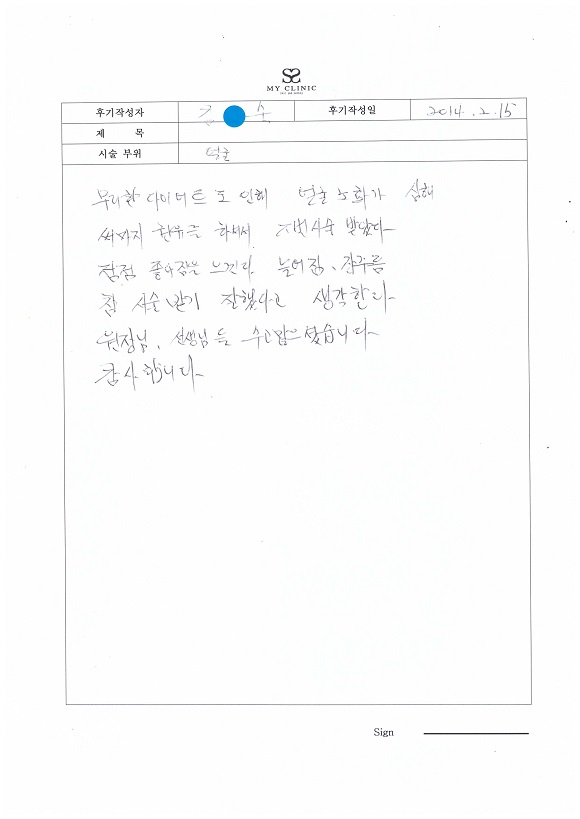 MY CLINIC
후기작성자 김 순 후기작성일 2014. 2. 15
제 목
시술 부위 얼굴
무리한 다이어트로 인해 얼굴 노화가 심해
권유를 하셔서 시술 받았다
점점 좋아짐을 느낀다. 늘어짐, 잔주름
참 시술받기 잘했다고 생각한다
원장님, 선생님들 수고많으셨습니다
감사합니다
Sign